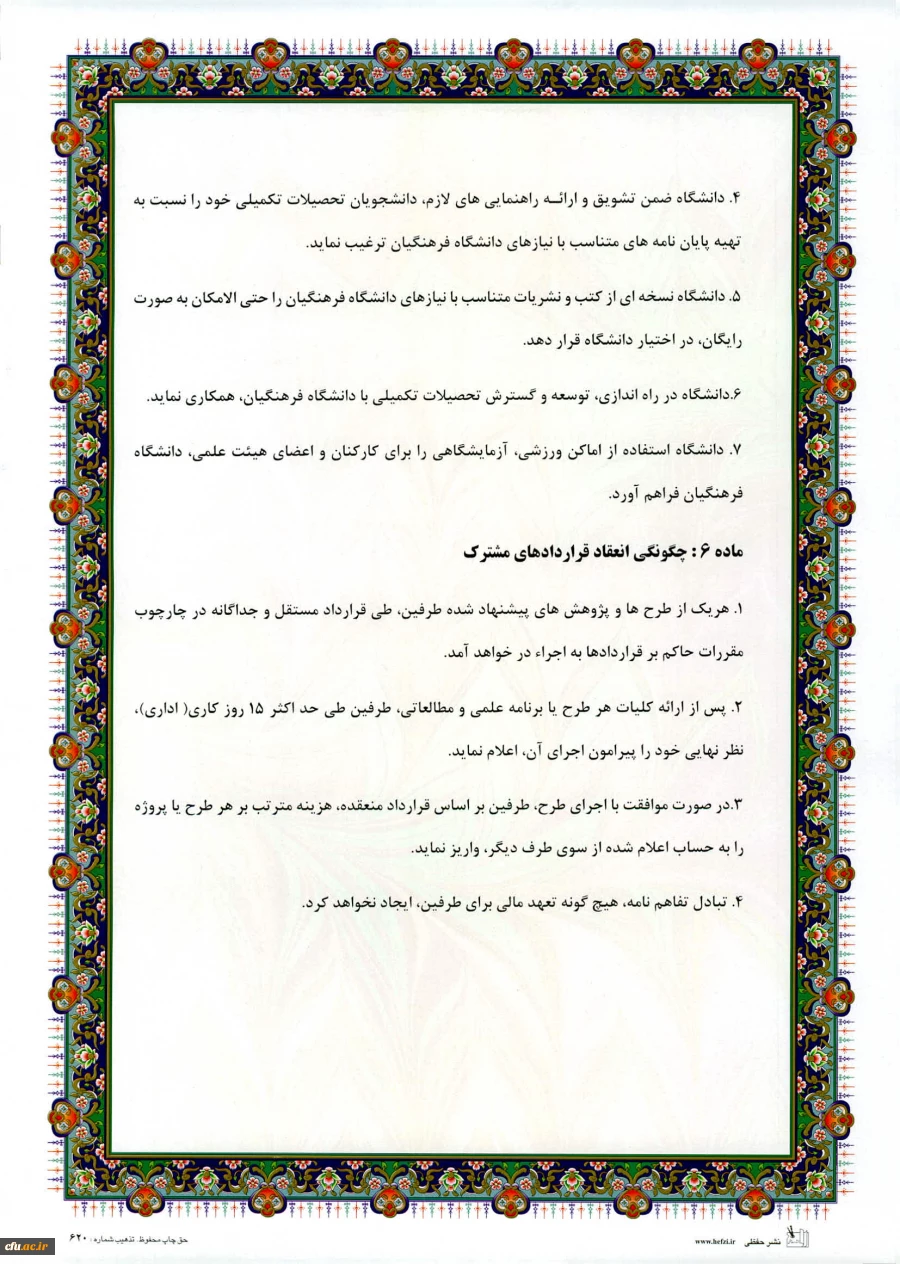 ۴. دانشگاه ضمن تشویق و ارائـه راهنمایی های لازم، دانشجویان تحصیلات تکمیلی خود را نسبت به
تهیه پایان نامه های متناسب با نیازهای دانشگاه فرهنگیان ترغیب نماید.
۵. دانشگاه نسخه ای از کتب و نشریات متناسب با نیازهای دانشگاه فرهنگیان را حتی الامکان به صورت
رایگان، در اختیار دانشگاه قرار دهد.
۶.دانشگاه در راه اندازی، توسعه و گسترش تحصیلات تکمیلی با دانشگاه فرهنگیان، همکاری نماید.
۷. دانشگاه استفاده از اماکن ورزشی، آزمایشگاهی را برای کارکنان و اعضای هیئت علمی، دانشگاه
فرهنگیان فراهم آورد.
ماده ۶ : چگونگی انعقاد قراردادهای مشترک
۱. هریک از طرح ها و پژوهش های پیشنهاد شده طرفین، طی قرارداد مستقل و جداگانه در چارچوب
مقررات حاکم بر قراردادها به اجراء در خواهد آمد.
۲. پس از ارائه کلیات هر طرح یا برنامه علمی و مطالعاتی، طرفین طی حد اکثر ۱۵ روز کاری( اداری)،
نظر نهایی خود را پیرامون اجرای آن، اعلام نماید.
۳.در صورت موافقت با اجرای طرح، طرفین بر اساس قرارداد منعقده، هزینه مترتب بر هر طرح یا پروژه
را به حساب اعلام شده از سوی طرف دیگر، واریز نماید.
۴. تبادل تفاهم نامه، هیچ گونه تعهد مالی برای طرفین، ایجاد نخواهد کرد.
نشر حفظی www.hefzi.ir
حق چاپ محفوظ. تذهیب شماره : ۶۲۰
cfu.ac.ir